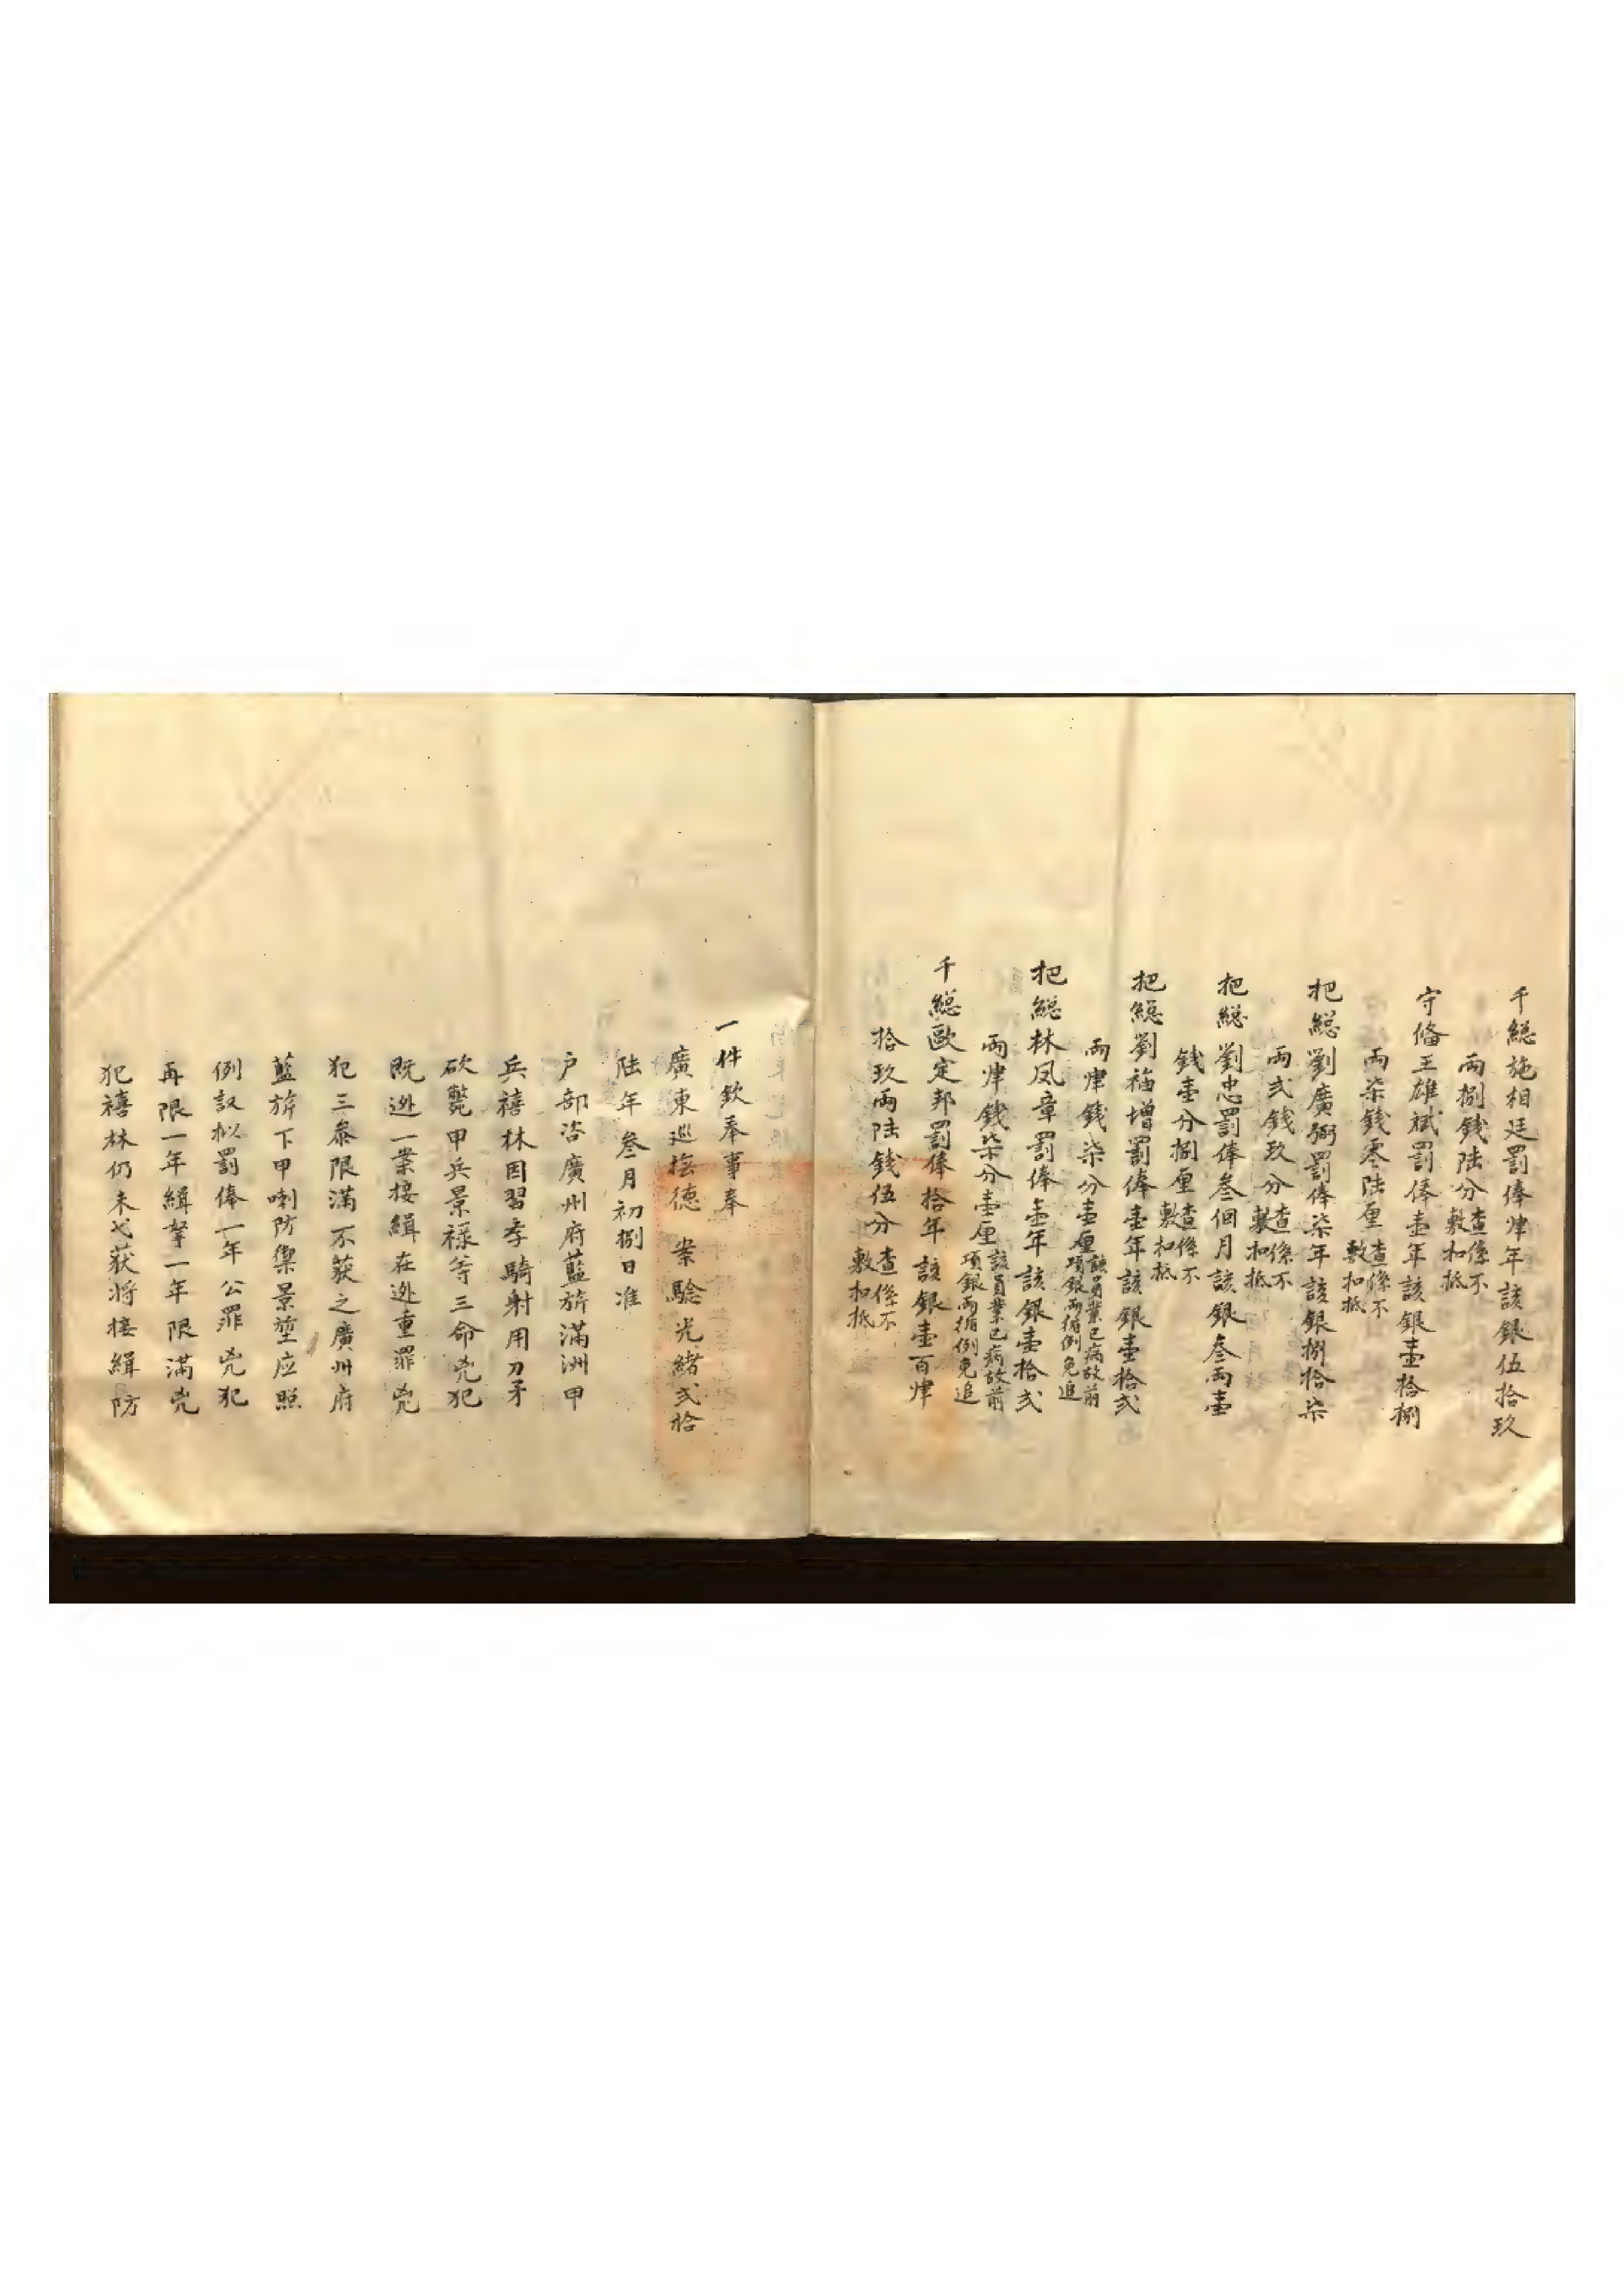 千総施相廷罰俸肆年該銀伍拾玖
兩捌錢陸分查係不敷扣抵
守俻王雄斌罰俸壹年該銀壹拾捌
兩柒錢零陸厘查係不敷扣抵
把総劉廣弼罰俸柒年該銀捌拾柒
兩弍錢玖分查係不敷扣抵
把総劉忠罰俸叁個月該銀叁兩壹
錢壹分捌厘查係不敷扣抵
把総劉福增罰俸壹年該銀壹拾弍
兩肆錢柒分壹厘該員業已病故前項銀兩循例免追
把総林凤章罰俸壹年該銀壹拾弍
兩肆錢柒分壹厘該員業已病故前項銀兩循例免追
千総歐定邦罰俸拾年該銀壹百肆
拾玖兩陸錢伍分查係不敷扣抵
一件欽奉事奉
廣東巡撫德 案驗光緒弍拾
陆年叁月初捌日准
户部咨廣州府藍旂滿洲甲
兵禧林因習季騎射用刀矛
砍斃甲兵景祿等三命兇犯
既迯一業接緝在迯重罪兇
犯三叅限滿不获之廣州府
藍旂下甲喇防禦景堃应照
例議拟罰俸一年公罪兇犯
再限一年緝拏一年限滿兇
犯禧林仍未弋获将接緝防